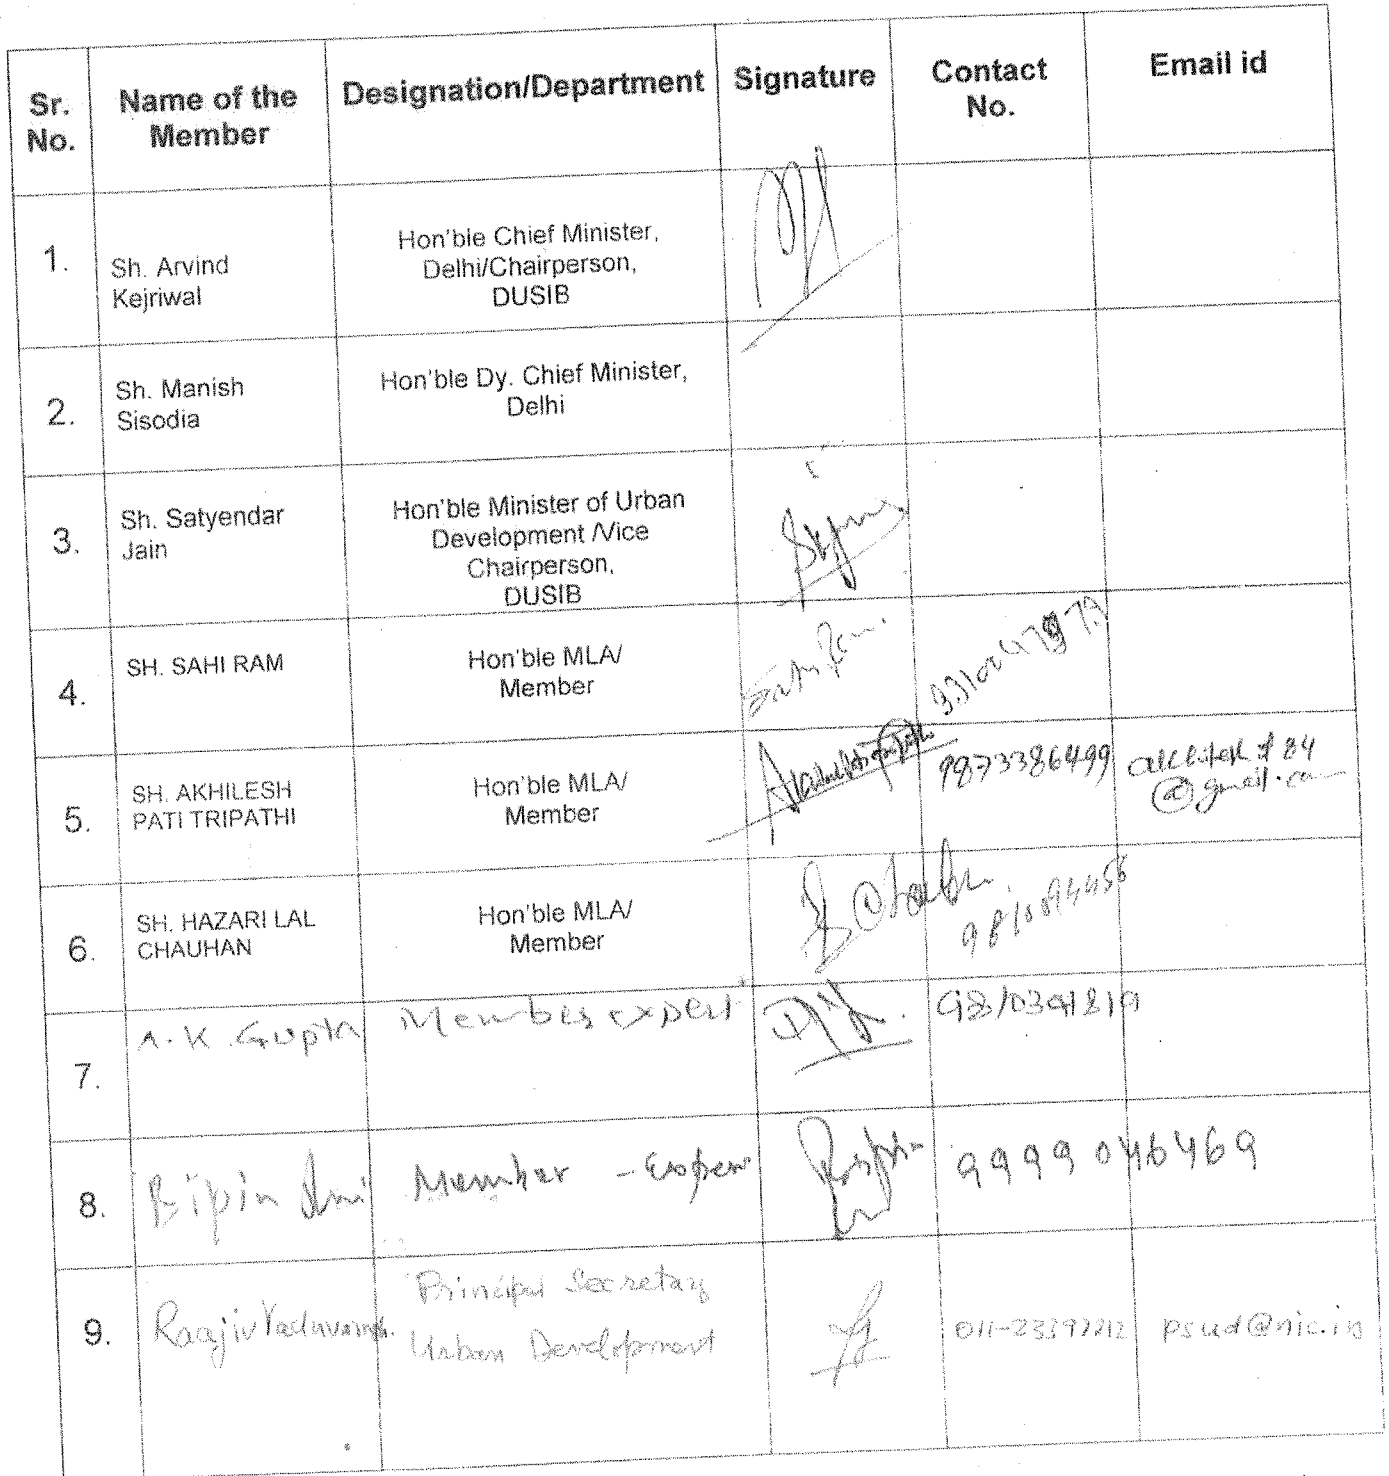 Sr. No. Name of the Member Designation/Department Signature Contact No. Email id
1. Sh. Arvind Kejriwal Hon'ble Chief Minister, Delhi/Chairperson, DUSIB
2. Sh. Manish Sisodia Hon'ble Dy. Chief Minister, Delhi
3. Sh. Satyendar Jain Hon'ble Minister of Urban Development /Vice Chairperson, DUSIB
4. SH. SAHI RAM Hon'ble MLA/ Member Sahi Ram
5. SH. AKHILESH PATI TRIPATHI Hon'ble MLA/ Member 9873386499 @gmail.com
6. SH. HAZARI LAL CHAUHAN Hon'ble MLA/ Member
7. A.K. Gupta Member expert 9810391819
8. Bipin Rai Member - Expert 9999046469
9. Raajiv Yaduvanshi Principal Secretary Urban Development psud@nic.in